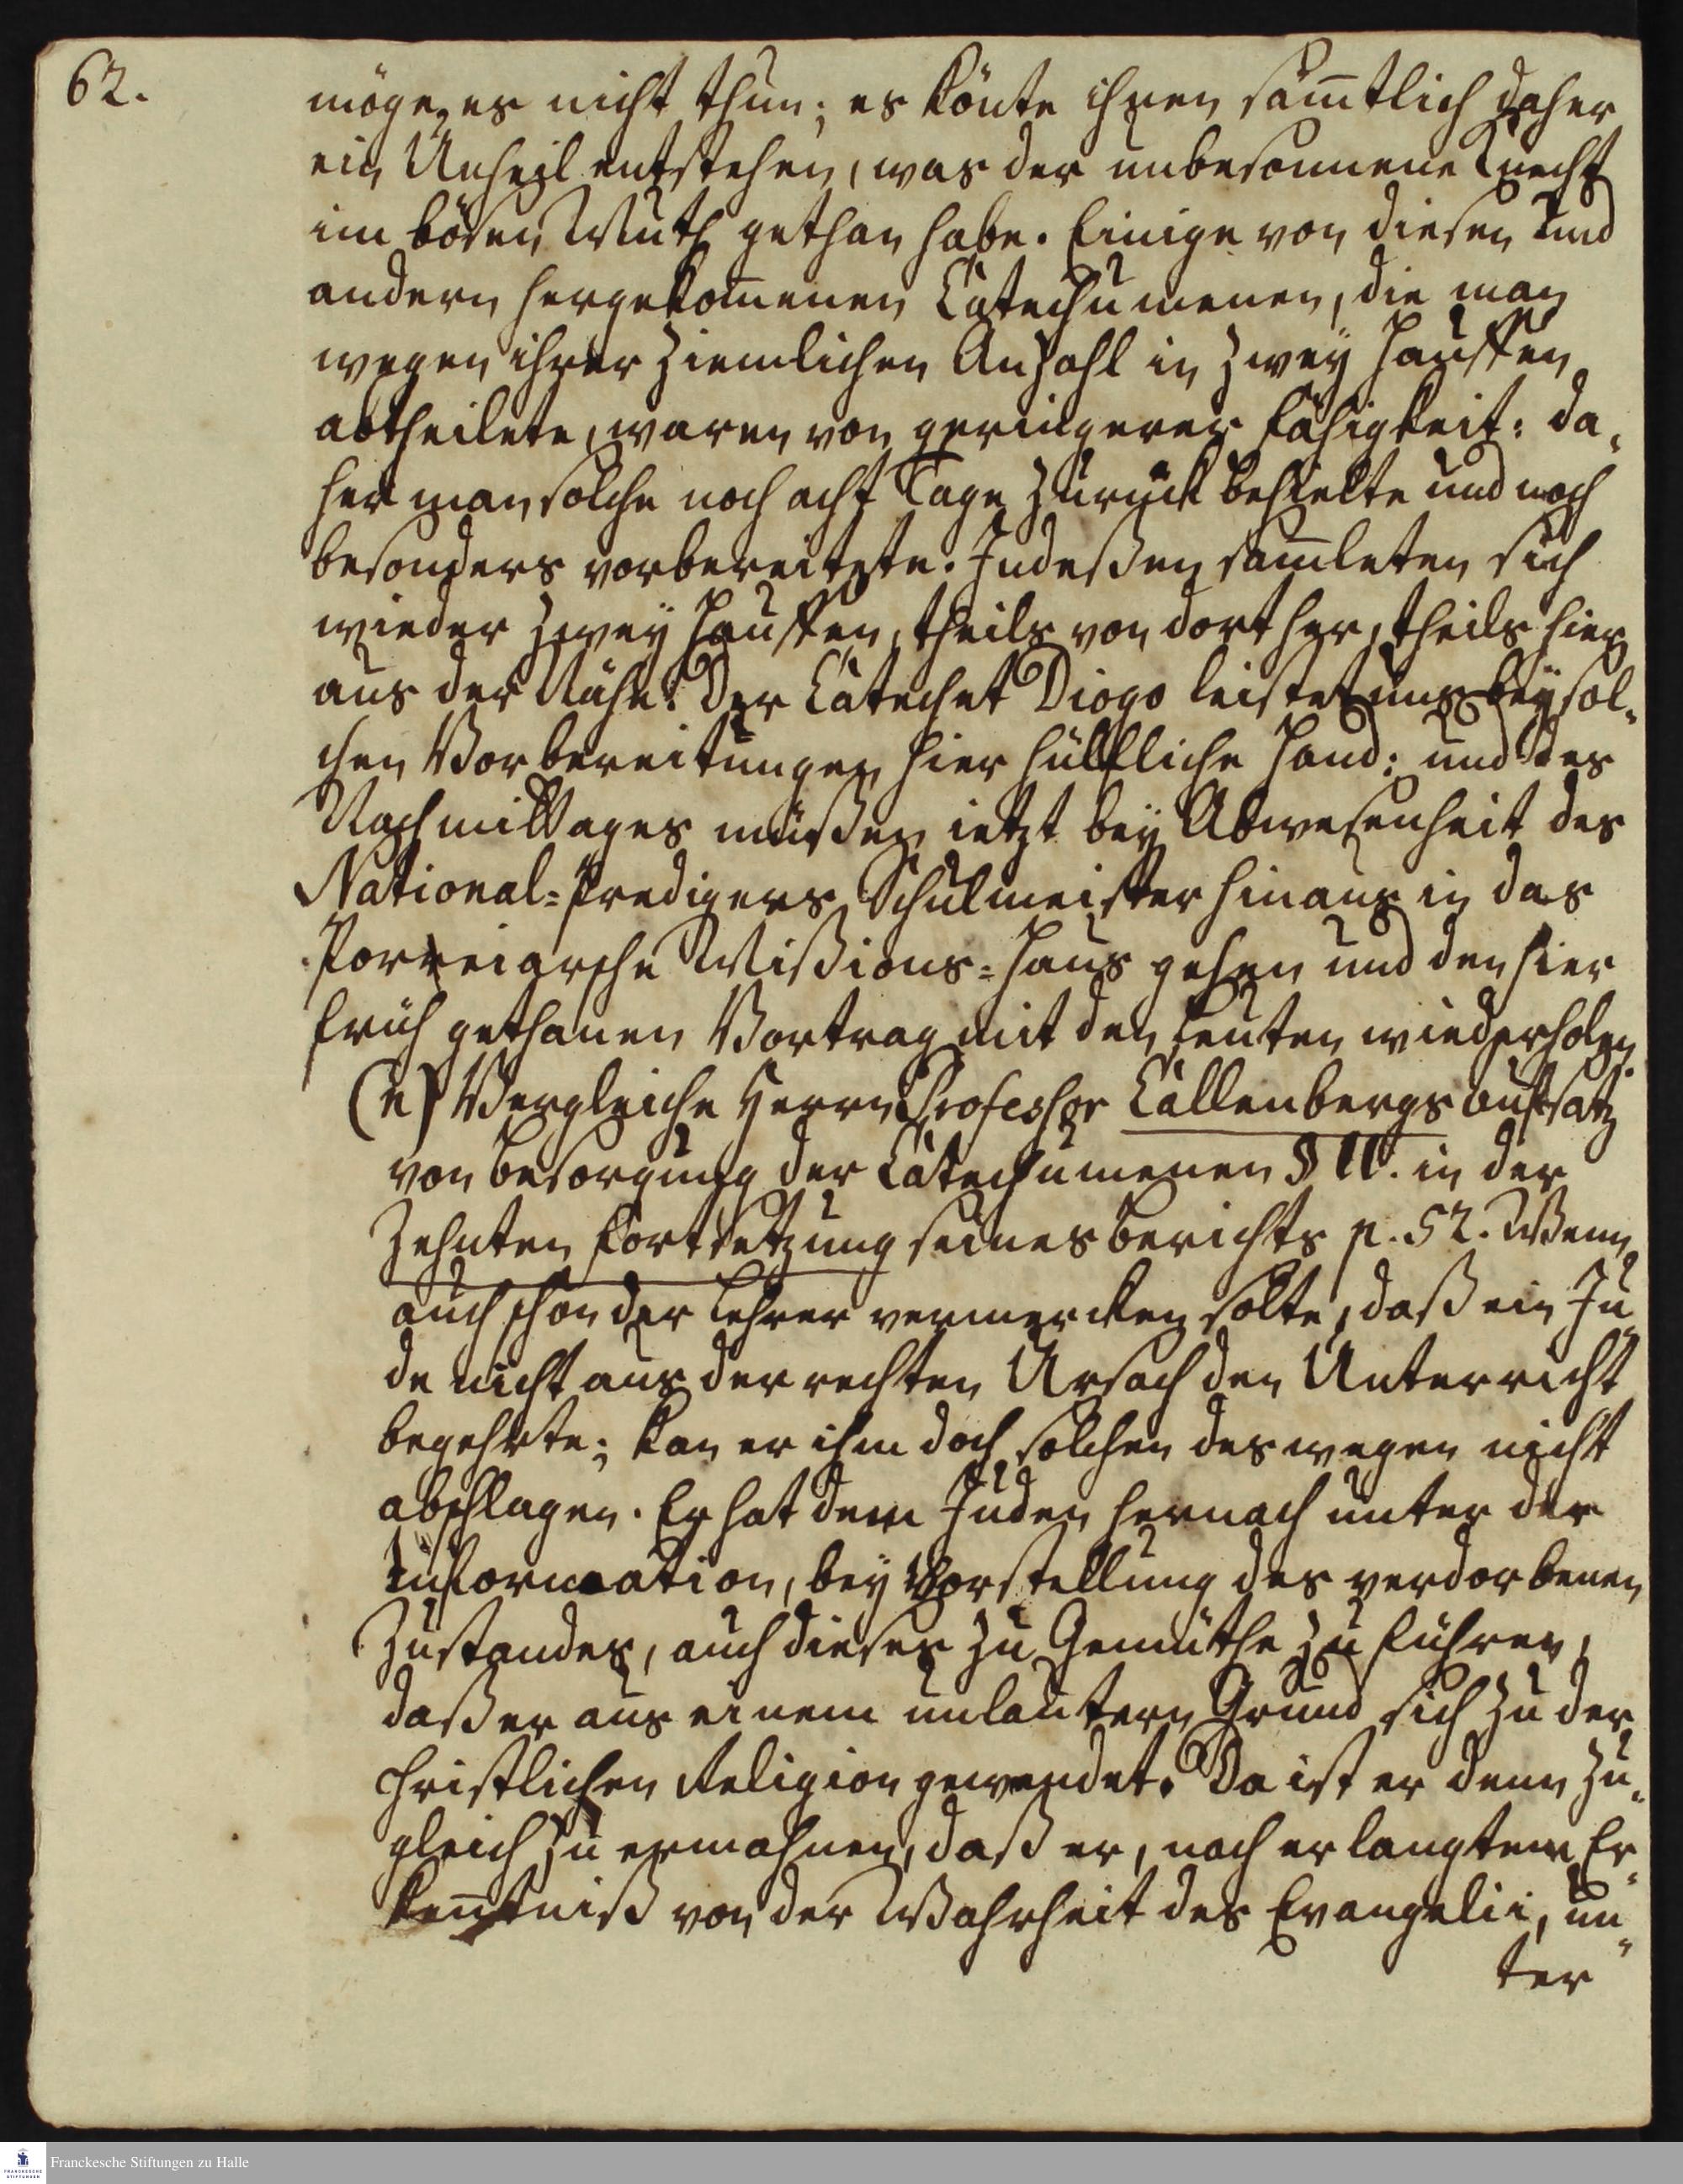 62.
möge es nicht thun; es könte ihnen sam̅tlich daher
ein Unheil entstehen, was der unbesonnene Knecht
im bösen Muth gethan habe. Einige von diesen und
andern hergekom̅enen Catechumenen, die man
wegen ihrer ziemlichen Anzahl in zwey Hauffen
abtheilete, waren von geringerer Fähigkeit: da„
her man solche noch acht Tage zurück behielte und noch
besonders vorbereitete. Indeßen sam̅leten sich
wieder zwey Hauffen, theils von dorther, theils hier
aus der Nähe. Der Catechet Diogo leistet uns bey sol„
chen Vorbereitungen hier hülfliche Hand: und des
Nachmittages müßen ietzt bey Abwesenheit des
National-Predigers Schulmeister hinaus in das
Porreiarsche Mißions-Haus gehen und den hier
früh gethanen Vortrag mit den Leuten wiederholen.
(e) Vergleiche Herrn Professor Callenbergs Aufsatz
von besorgung der Catechumenen § II. in der
Zehnten Fortsetzung seines berichts p. 52. Wenn
auch schon der Lehrer vermercken solte, daß ein Ju„
de nicht aus der rechten Ursach den Unterricht
begehrte; kan er ihm doch solchen deswegen nicht
abschlagen. Er hat dem Juden hernach unter der
Information, bey Vorstellung des verdorbenen
Zustandes, auch dieses zu Gemüthe zu führen,
daß er aus einem unlautern Grund sich zu der
christlichen Religion gewendet. Da ist er denn zu„
gleich zu ermahnen, daß er, nach erlangtem Er„
ken̅tniß von der Wahrheit des Evangelii, un„
ter
Franckesche Stiftungen zu Halle
FRANCKESCHE
STIFTUNGEN